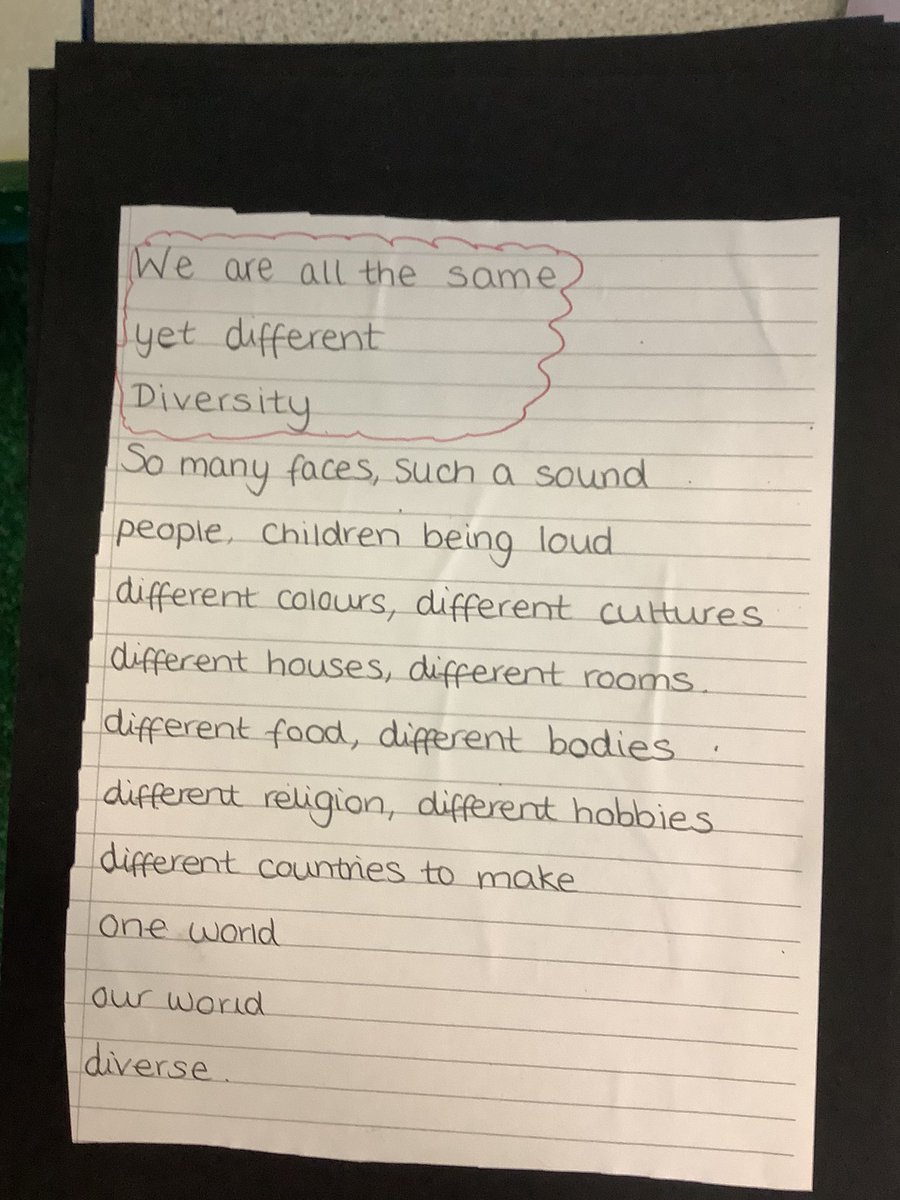 We are all the same
yet different
Diversity
So many faces, such a sound
people, children being loud
different colours, different cultures
different houses, different rooms.
different food, different bodies
different religion, different hobbies
different countries to make
one world
our world
diverse.